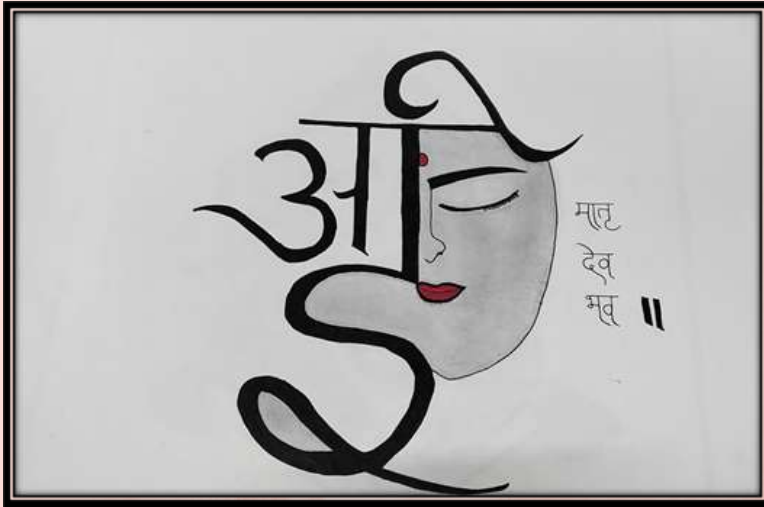 आई
मातृ
देव
भव ॥